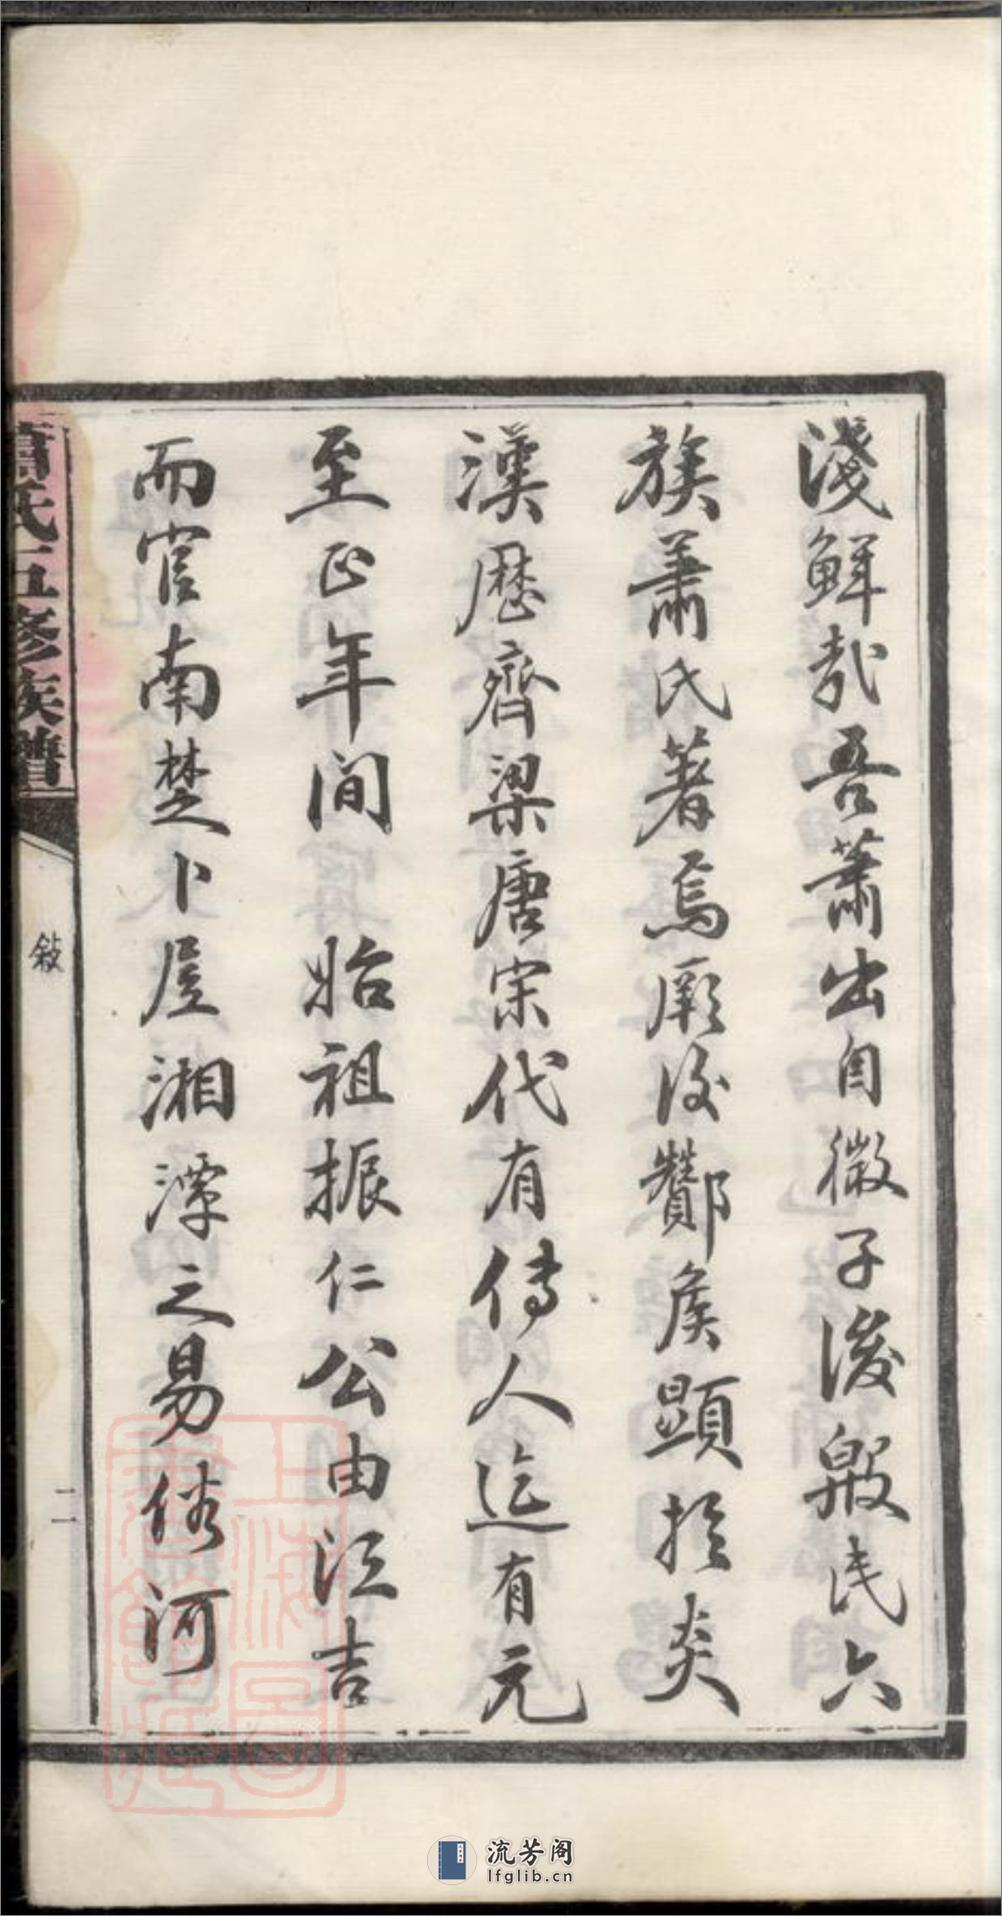 淺鮮哉吾蕭出自微子後殷民六
族蕭氏著焉厥後酇侯顯於炎
漢歷齊梁唐宋代有傳人迄有元
至正年間 始祖振仁公由江吉
而官南楚卜居湘潭之易俗河
蕭氏五修族譜
敍
二
上海圖書館藏
流芳阁
lfglib.cn